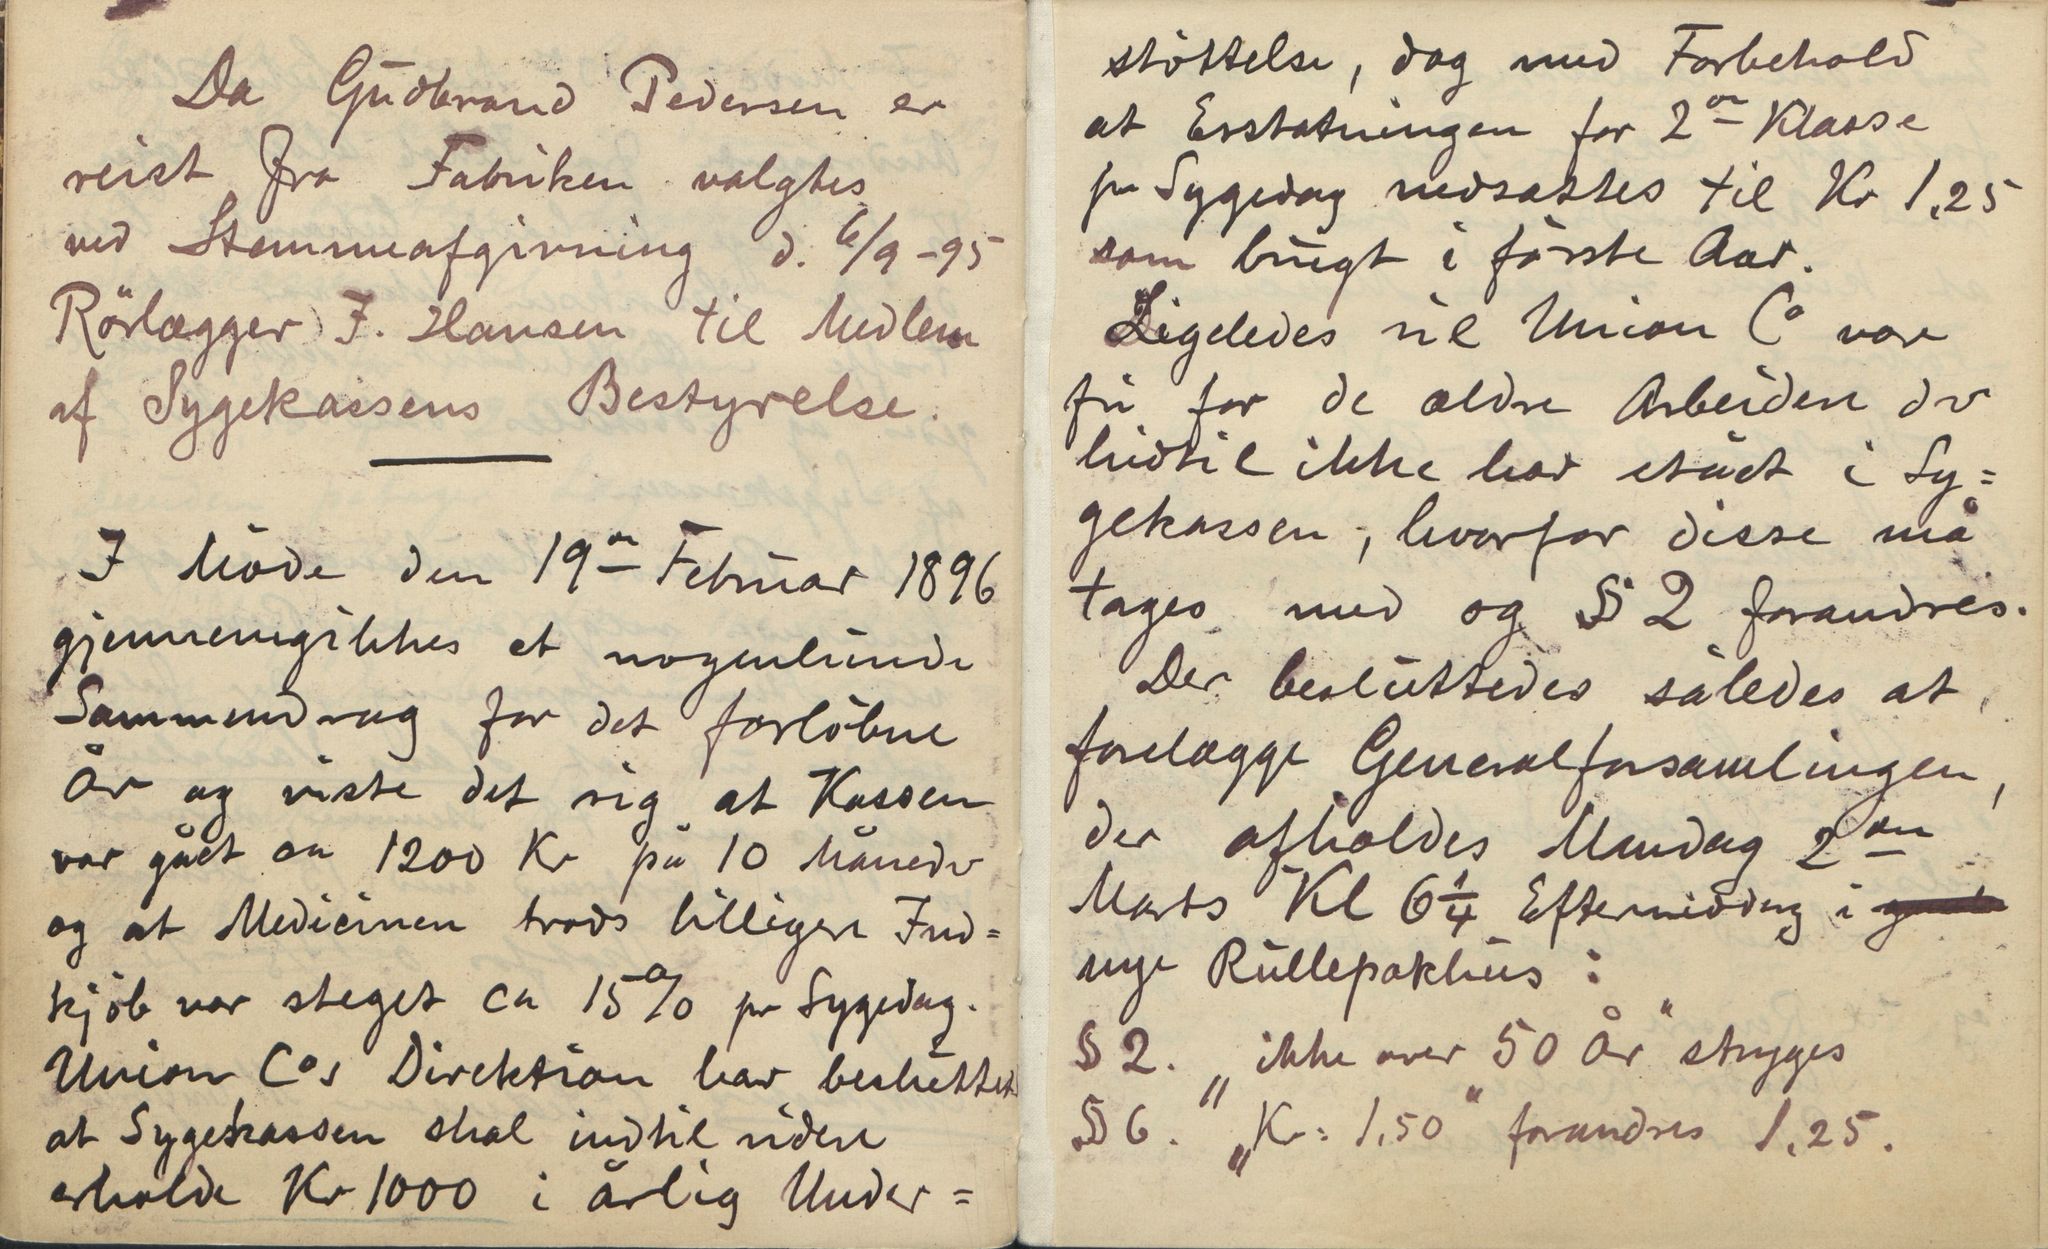 Da Gudbrand Pedersen er
reist fra Fabriken valgtes
ved Stemmeafgivning d. 6/9 -95
Rörlægger J. Hansen til Medlem
af Sygekassens Bestyrelse.
I Möde den 19en Februar 1896
gjennemgikkes et nogenlunde
Sammendrag for det forlöbne
År og viste det sig at Kassen
var gået ca 1200 Kr på 10 Måneder
og at Medicinen trods billigere Ind=
kjöb var steget ca 15% pr Sygedag.
Union Cos Direktion har besluttet
at Sygekassen skal indtil videre
erholde Kr 1000 i årlig Under=
stöttelse, dog med Forbehold
at Erstatningen for 2en Klasse
pr Sygedag nedsattes til Kr 1,25
som brugt i förste Aar.
Ligeledes vil Union Co var
fri for de ældre Arbeidere der
hidtil ikke har stået i Sy=
gekassen, hvorfor disse må
tages med og § 2 forandres.
Der besluttedes således at
forelægge Generalforsamlingen,
der afholdes Mandag 2en
Marts Kl 6 1/4 Eftermiddag i
nye Rullepakhus :
§ 2. „ikke over 50 År" stryges
§ 6. „Kr: 1,50" forandres 1,25.